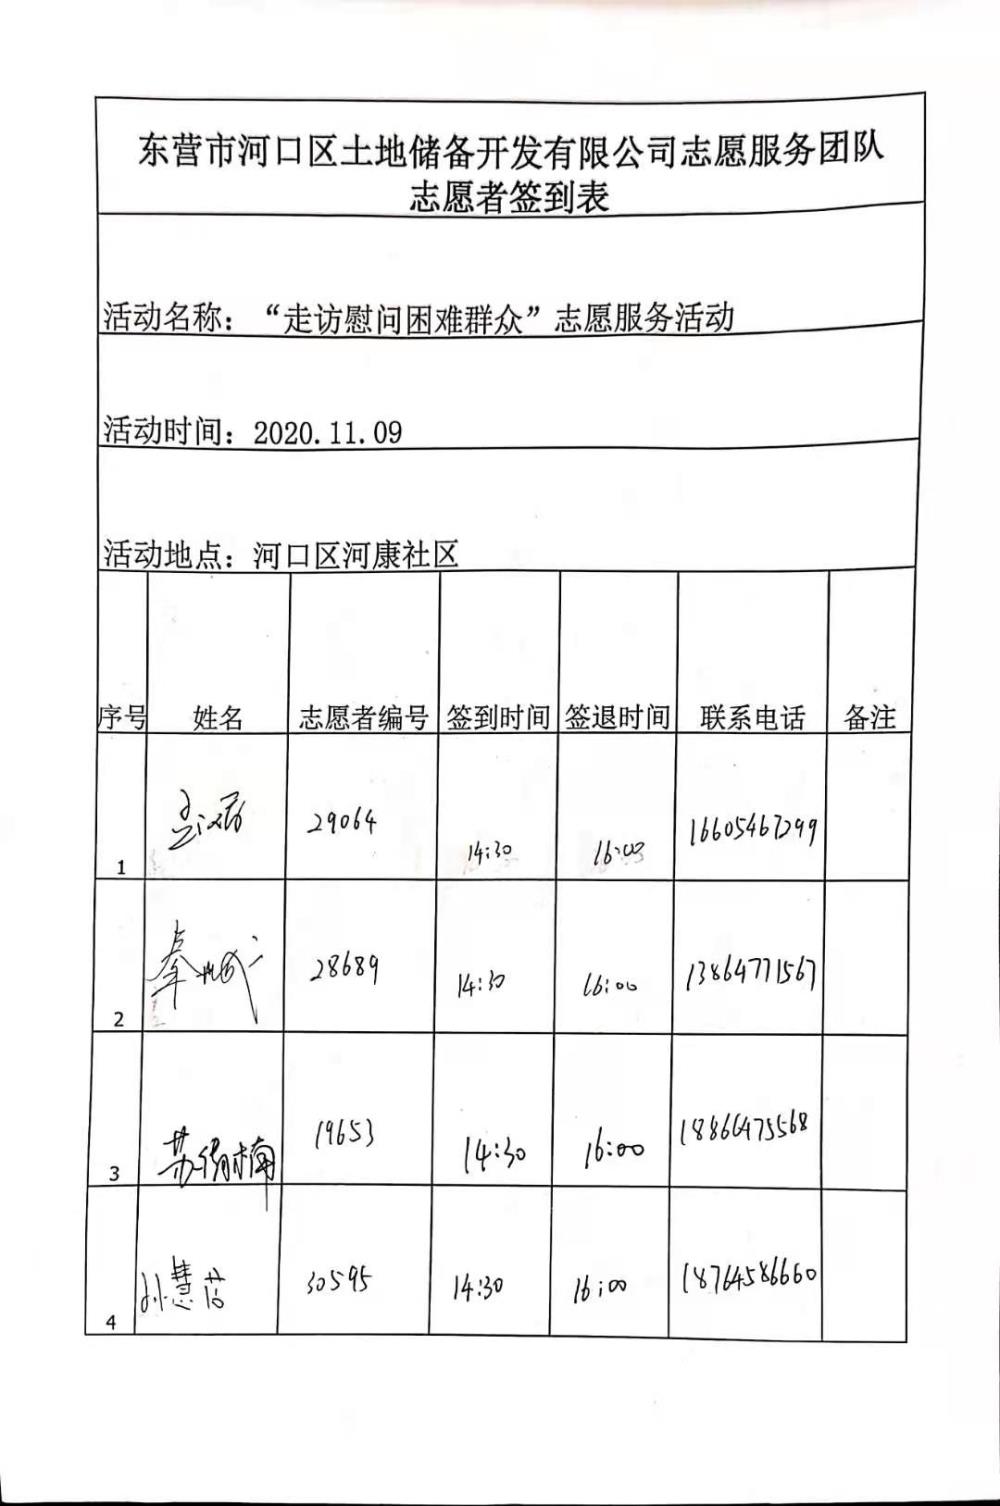 东营市河口区土地储备开发有限公司志愿服务团队
志愿者签到表
活动名称：“走访慰问困难群众”志愿服务活动
活动时间：2020.11.09
活动地点：河口区河康社区
序号 姓名 志愿者编号 签到时间 签退时间 联系电话 备注
1 29064 14:30 16:00 16605467299
2 28689 14:30 16:00 13864771567
3 19653 14:30 16:00 18866475568
4 孙慧 30595 14:30 16:00 18764586660